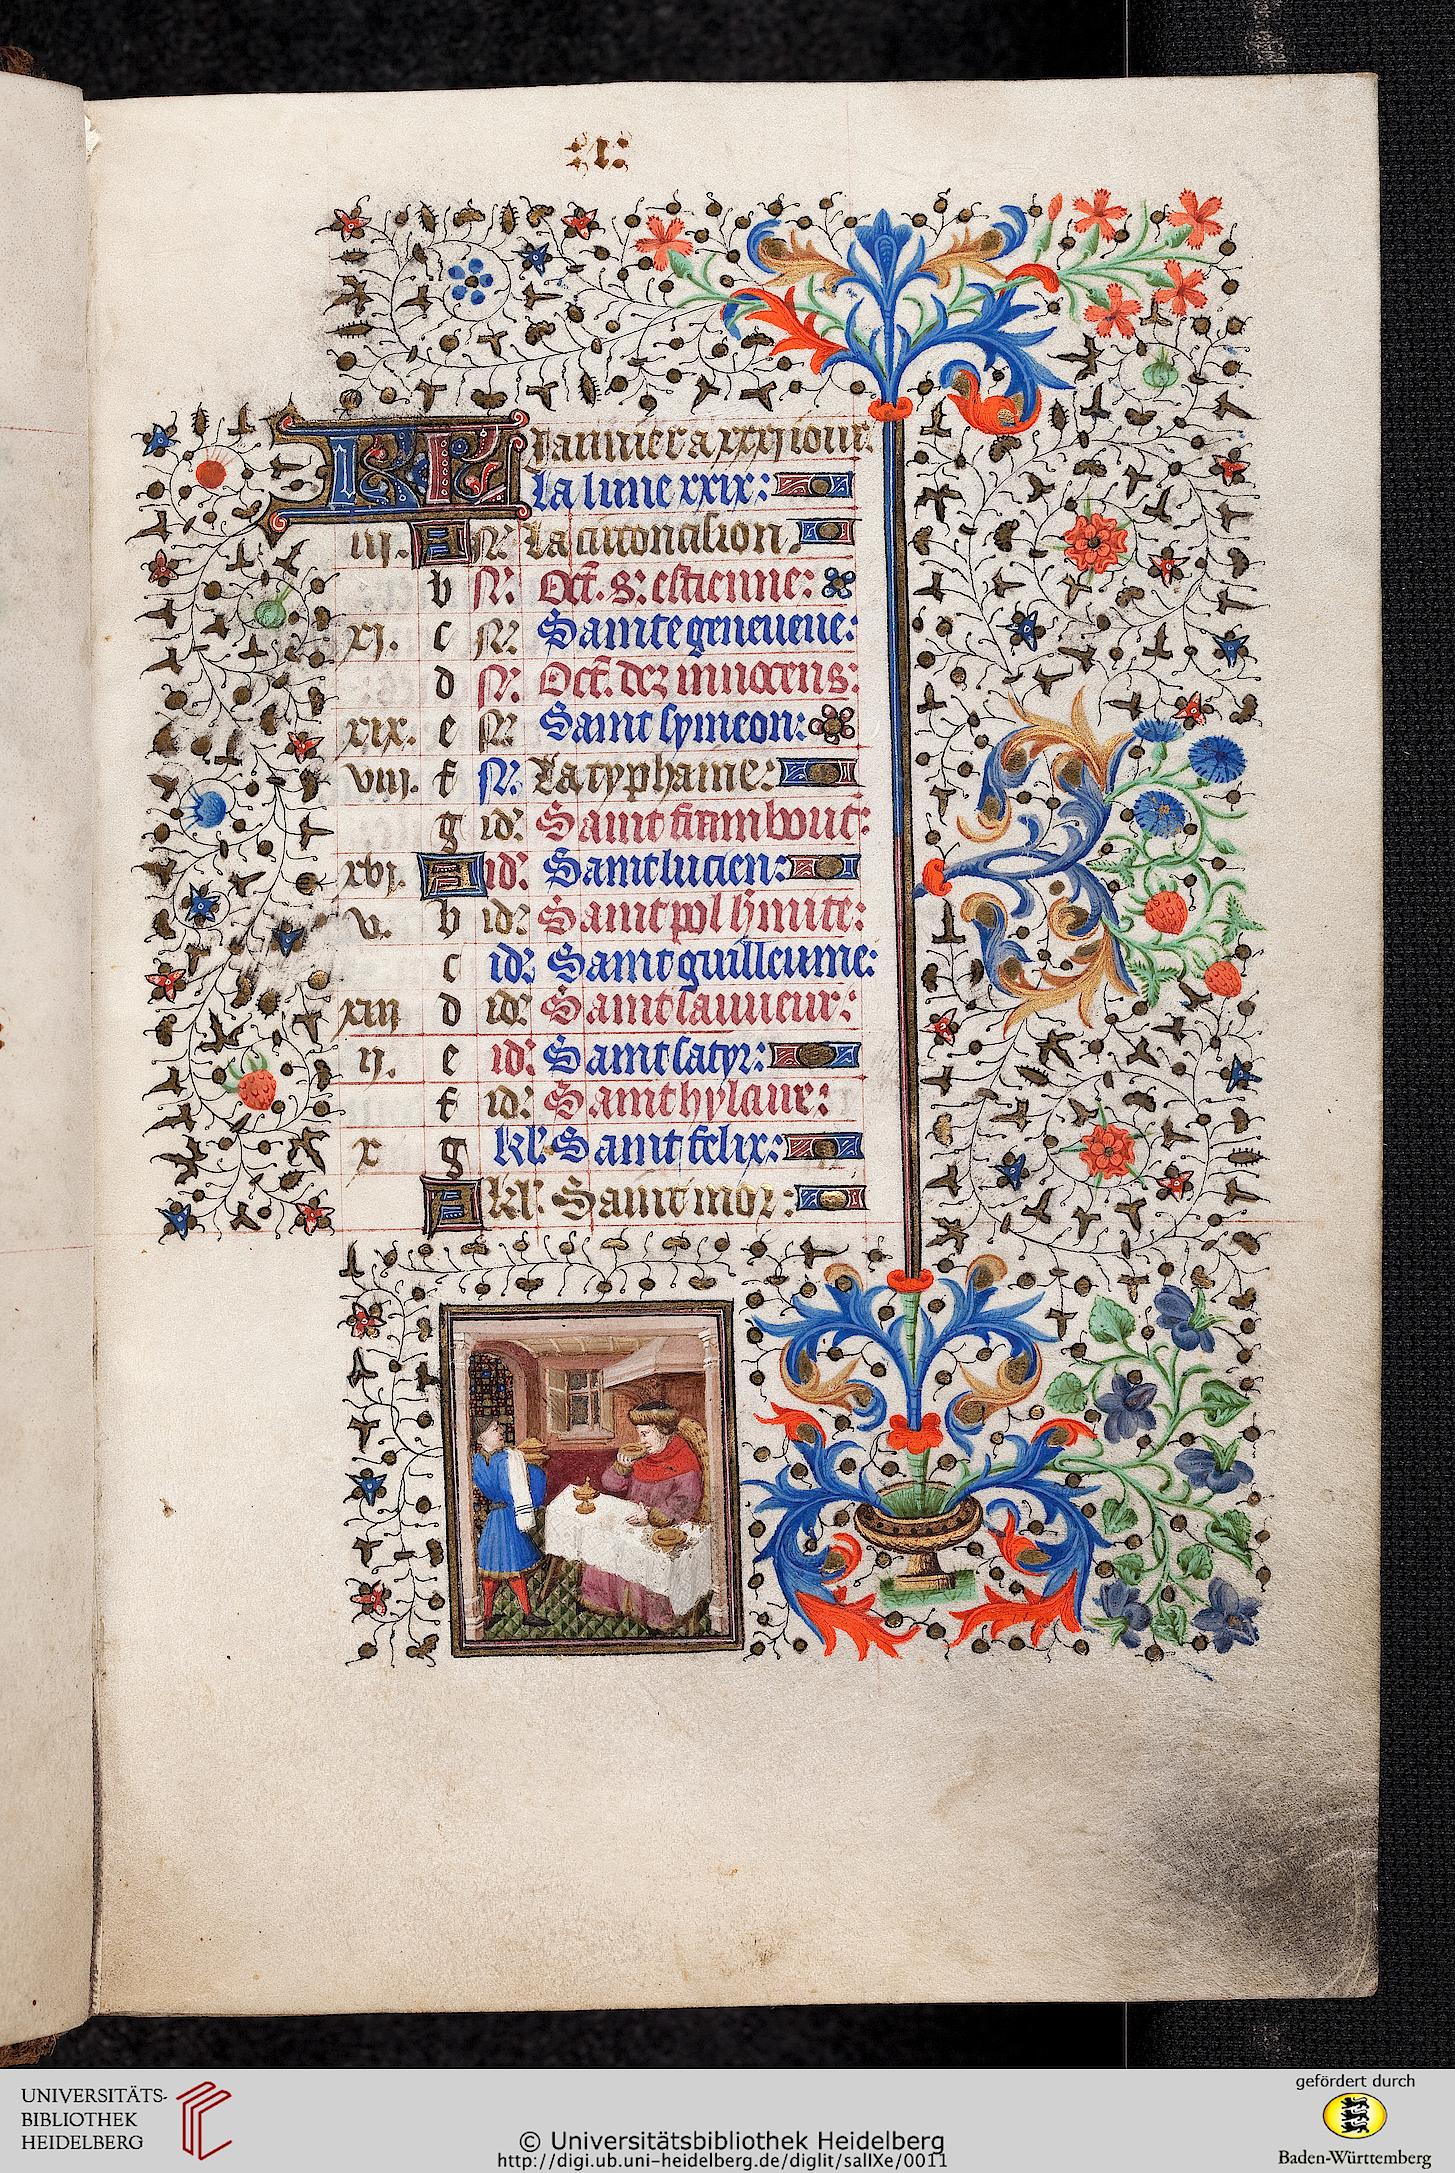 :·1·:
KL Januier a xxxj iour.
La lune xxix:
iii. A N. La circoncision.
b N: Oct. s: estienne:
xi. c N. Sainte geneueue:
d N: Oct. dez innocens:
xix. e N. Saint symeon:
viii. f N: La typhaine:
g id: Saint frambout:
xvi. A id: Saint lucien:
v. b id: Saint pol hmite:
c id: Saint guilleume:
xiii d id: Saint sauueur:
ii. e id: Saint satyr:
f id: Saint hylaire:
x g kl. Saint felix:
A kl. Saint mor:
UNIVERSITÄTS-
BIBLIOTHEK
HEIDELBERG
© Universitätsbibliothek Heidelberg
http://digi.ub.uni-heidelberg.de/diglit/salIXe/0011
gefördert durch
Baden-Württemberg